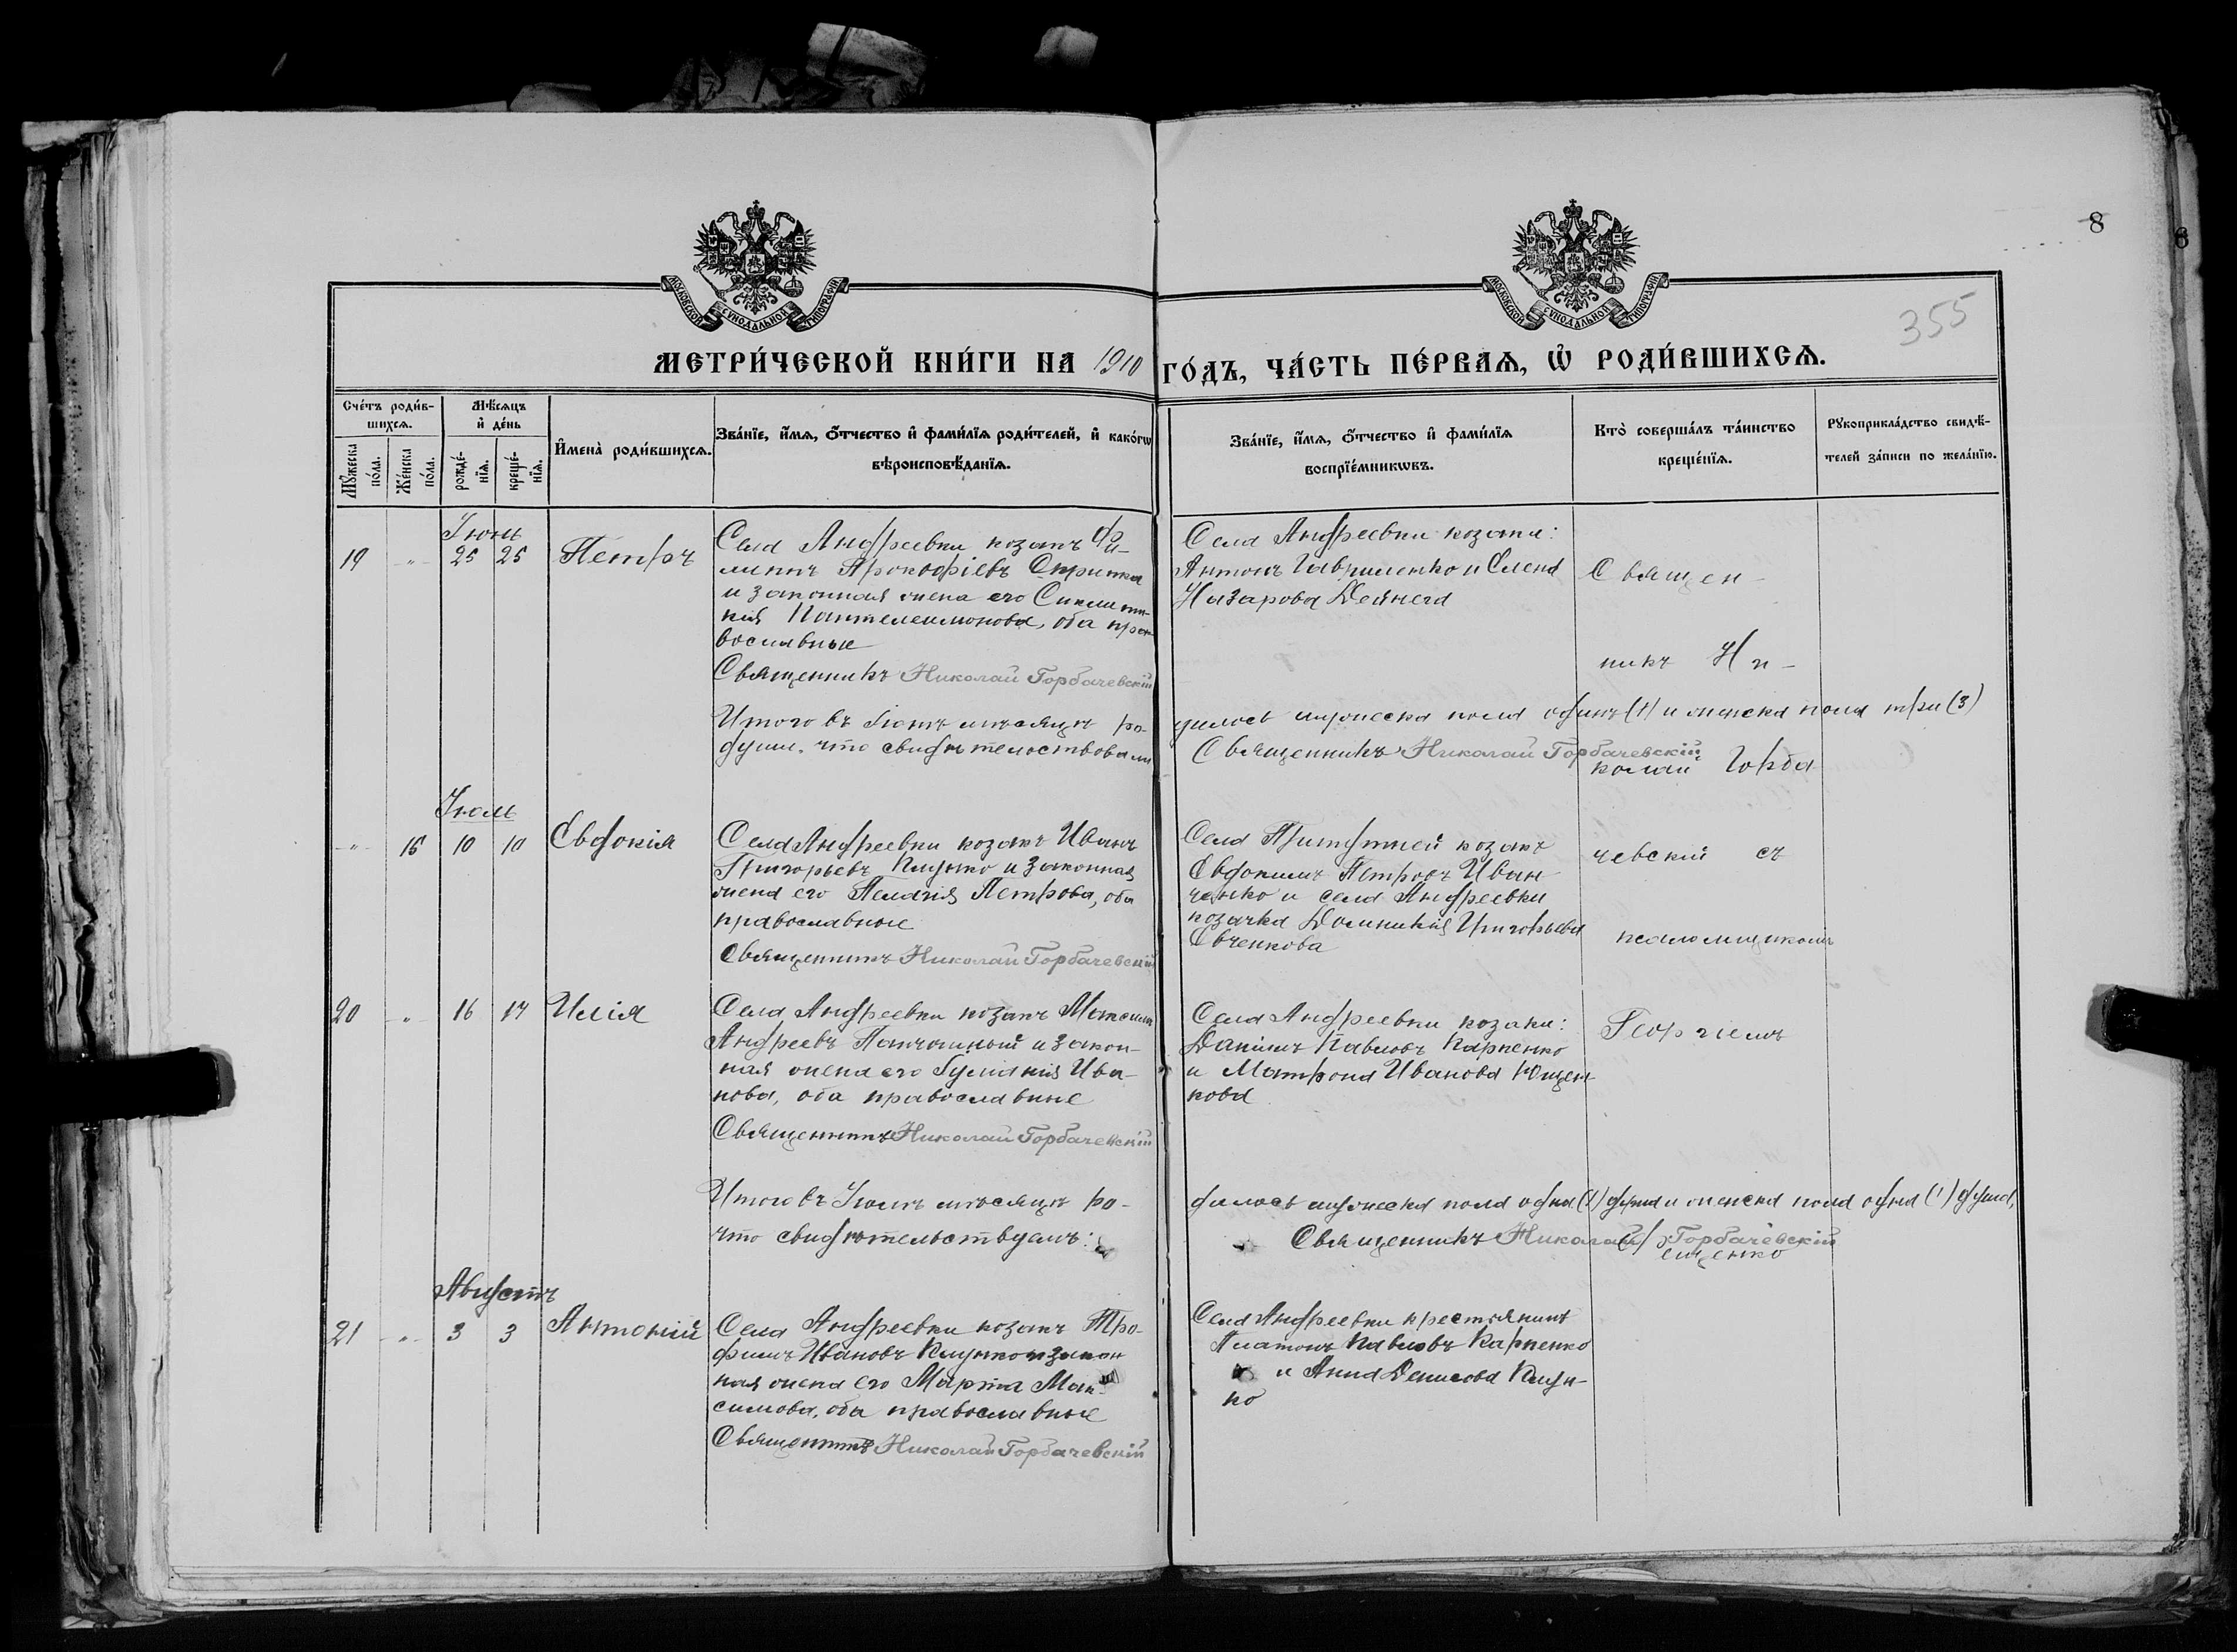 8
355
МОСКОВСКОЙ СѴНОДАЛЬНОЙ ТИПОГРАФІИ
МОСКОВСКОЙ СѴНОДАЛЬНОЙ ТИПОГРАФІИ
МЕТРИ́ЧЕСКОЙ КНИ́ГИ НА 1910 ГО́ДЪ, ЧА́СТЬ ПЕ́РВАѦ, Ѽ РОДИ́ВШИХСѦ.
Сче́тъ роди́в-
шихсѧ.
Мꙋ́жеска
по́ла.
Же́нска
по́ла.
Мѣ́сѧцъ
и҆ де́нь
рожде́-
нїѧ.
креще́-
нїѧ.
И҆мена̀ роди́вшихсѧ.
Зва́нїе, и҆́мѧ, ѻ҆́тчество и҆ фами́лїѧ роди́телей, и҆ како́гѡ
вѣроисповѣ́данїѧ.
Зва́нїе, и҆́мѧ, ѻ҆́тчество и҆ фами́лїѧ
воспрїе́мникѡвъ.
Кто̀ соверша́лъ та́инство
креще́нїѧ.
Рꙋкоприкла́дство свидѣ́-
телей за́писи по жела́нїю.
Іюнь
19 -"- 25 25 Петръ
Села Андреевки козакъ Фи-
липпъ Прокофіевъ Скрипка
и законная жена его Синклити-
кія Пантелеимонова, оба пра-
вославные
Священникъ Николай Горбачевскій
Села Андреевки козаки:
Антонъ Гавриленко и Елена
Назарова Дейнега
Священ-
никъ Ни-
Итого въ Іюнѣ мѣсяцѣ ро-
дилось мужеска пола одинъ (1) и женска пола три (3)
души, что свидѣтельствовали
Священникъ Николай Горбачевскій
колай Горба
Іюль
-"- 16 10 10 Евдокія
Села Андреевки козакъ Иванъ
Григорьевъ Клунко и законная
жена его Пелагія Петрова, оба
православные
Священникъ Николай Горбачевскій
Села козакъ
Евдокимъ Петровъ Иван-
ченко и села Андреевки
козачка Домникія Григорьева
Евченкова
чевскій съ
псаломщикомъ
20 -"- 16 17 Илія
Села Андреевки козакъ Максимъ
Андреевъ и закон-
ная жена его Іуліанія Ива-
нова, оба православные
Священникъ Николай Горбачевскій
Села Андреевки козаки:
Даніилъ Павловъ Карпенко
и Матрона Иванова Ющен-
кова
Георгіемъ
Итого въ Іюлѣ мѣсяцѣ ро-
дилось мужеска пола одна (1) душа и женска пола одна (1) душа,
что свидѣтельствуемъ:
Священникъ Николай Горбачевскій
ещенко
Августъ
21 -"- 3 3 Антоній
Села Андреевки козакъ Тро-
фимъ Ивановъ Клунко и закон
ная жена его Марѳа Мак-
симова, оба православные
Священникъ Николай Горбачевскій
Села Андреевки крестьянинъ
Платонъ Павловъ Карпенко
и Анна Денисова Клун-
ко